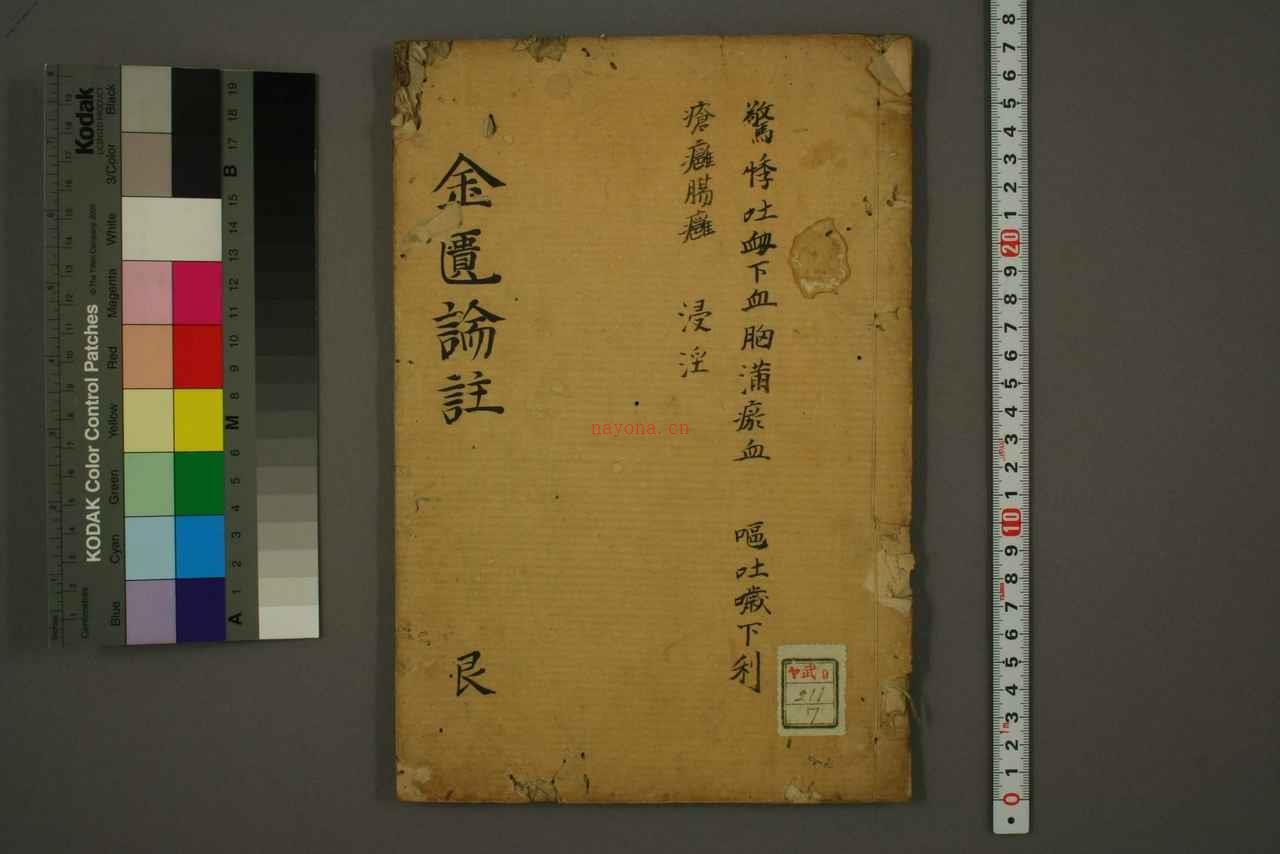 驚悸吐衂下血胸滿瘀血 嘔吐噦下利
瘡癰腸癰 浸淫
金匱論註
艮
ヤ武9
211
7
nayona.cn
Kodak
KODAK Color Control Patches
© The Tiffen Company, 2000
Blue Cyan Green Yellow Red Magenta White 3/Color Black
Inches
Centimetres
A 1 2 3 4 5 6 M 8 9 10 11 12 13 14 15 B 17 18 19
0 1 2 3 4 5 6 7 8 9 10 1 2 3 4 5 6 7 8 9 20 1 2 3 4 5 6 7 8